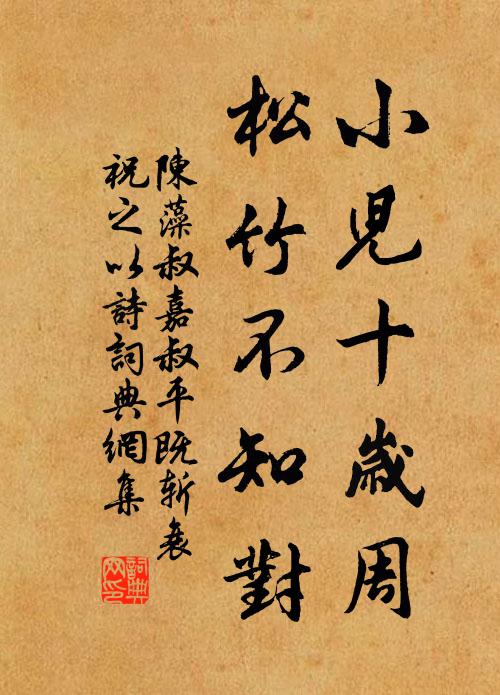 小児十歲周
松竹不知對
陳藻叔嘉叔平既斬衰
祝之以詩詞典網集
詞典网印